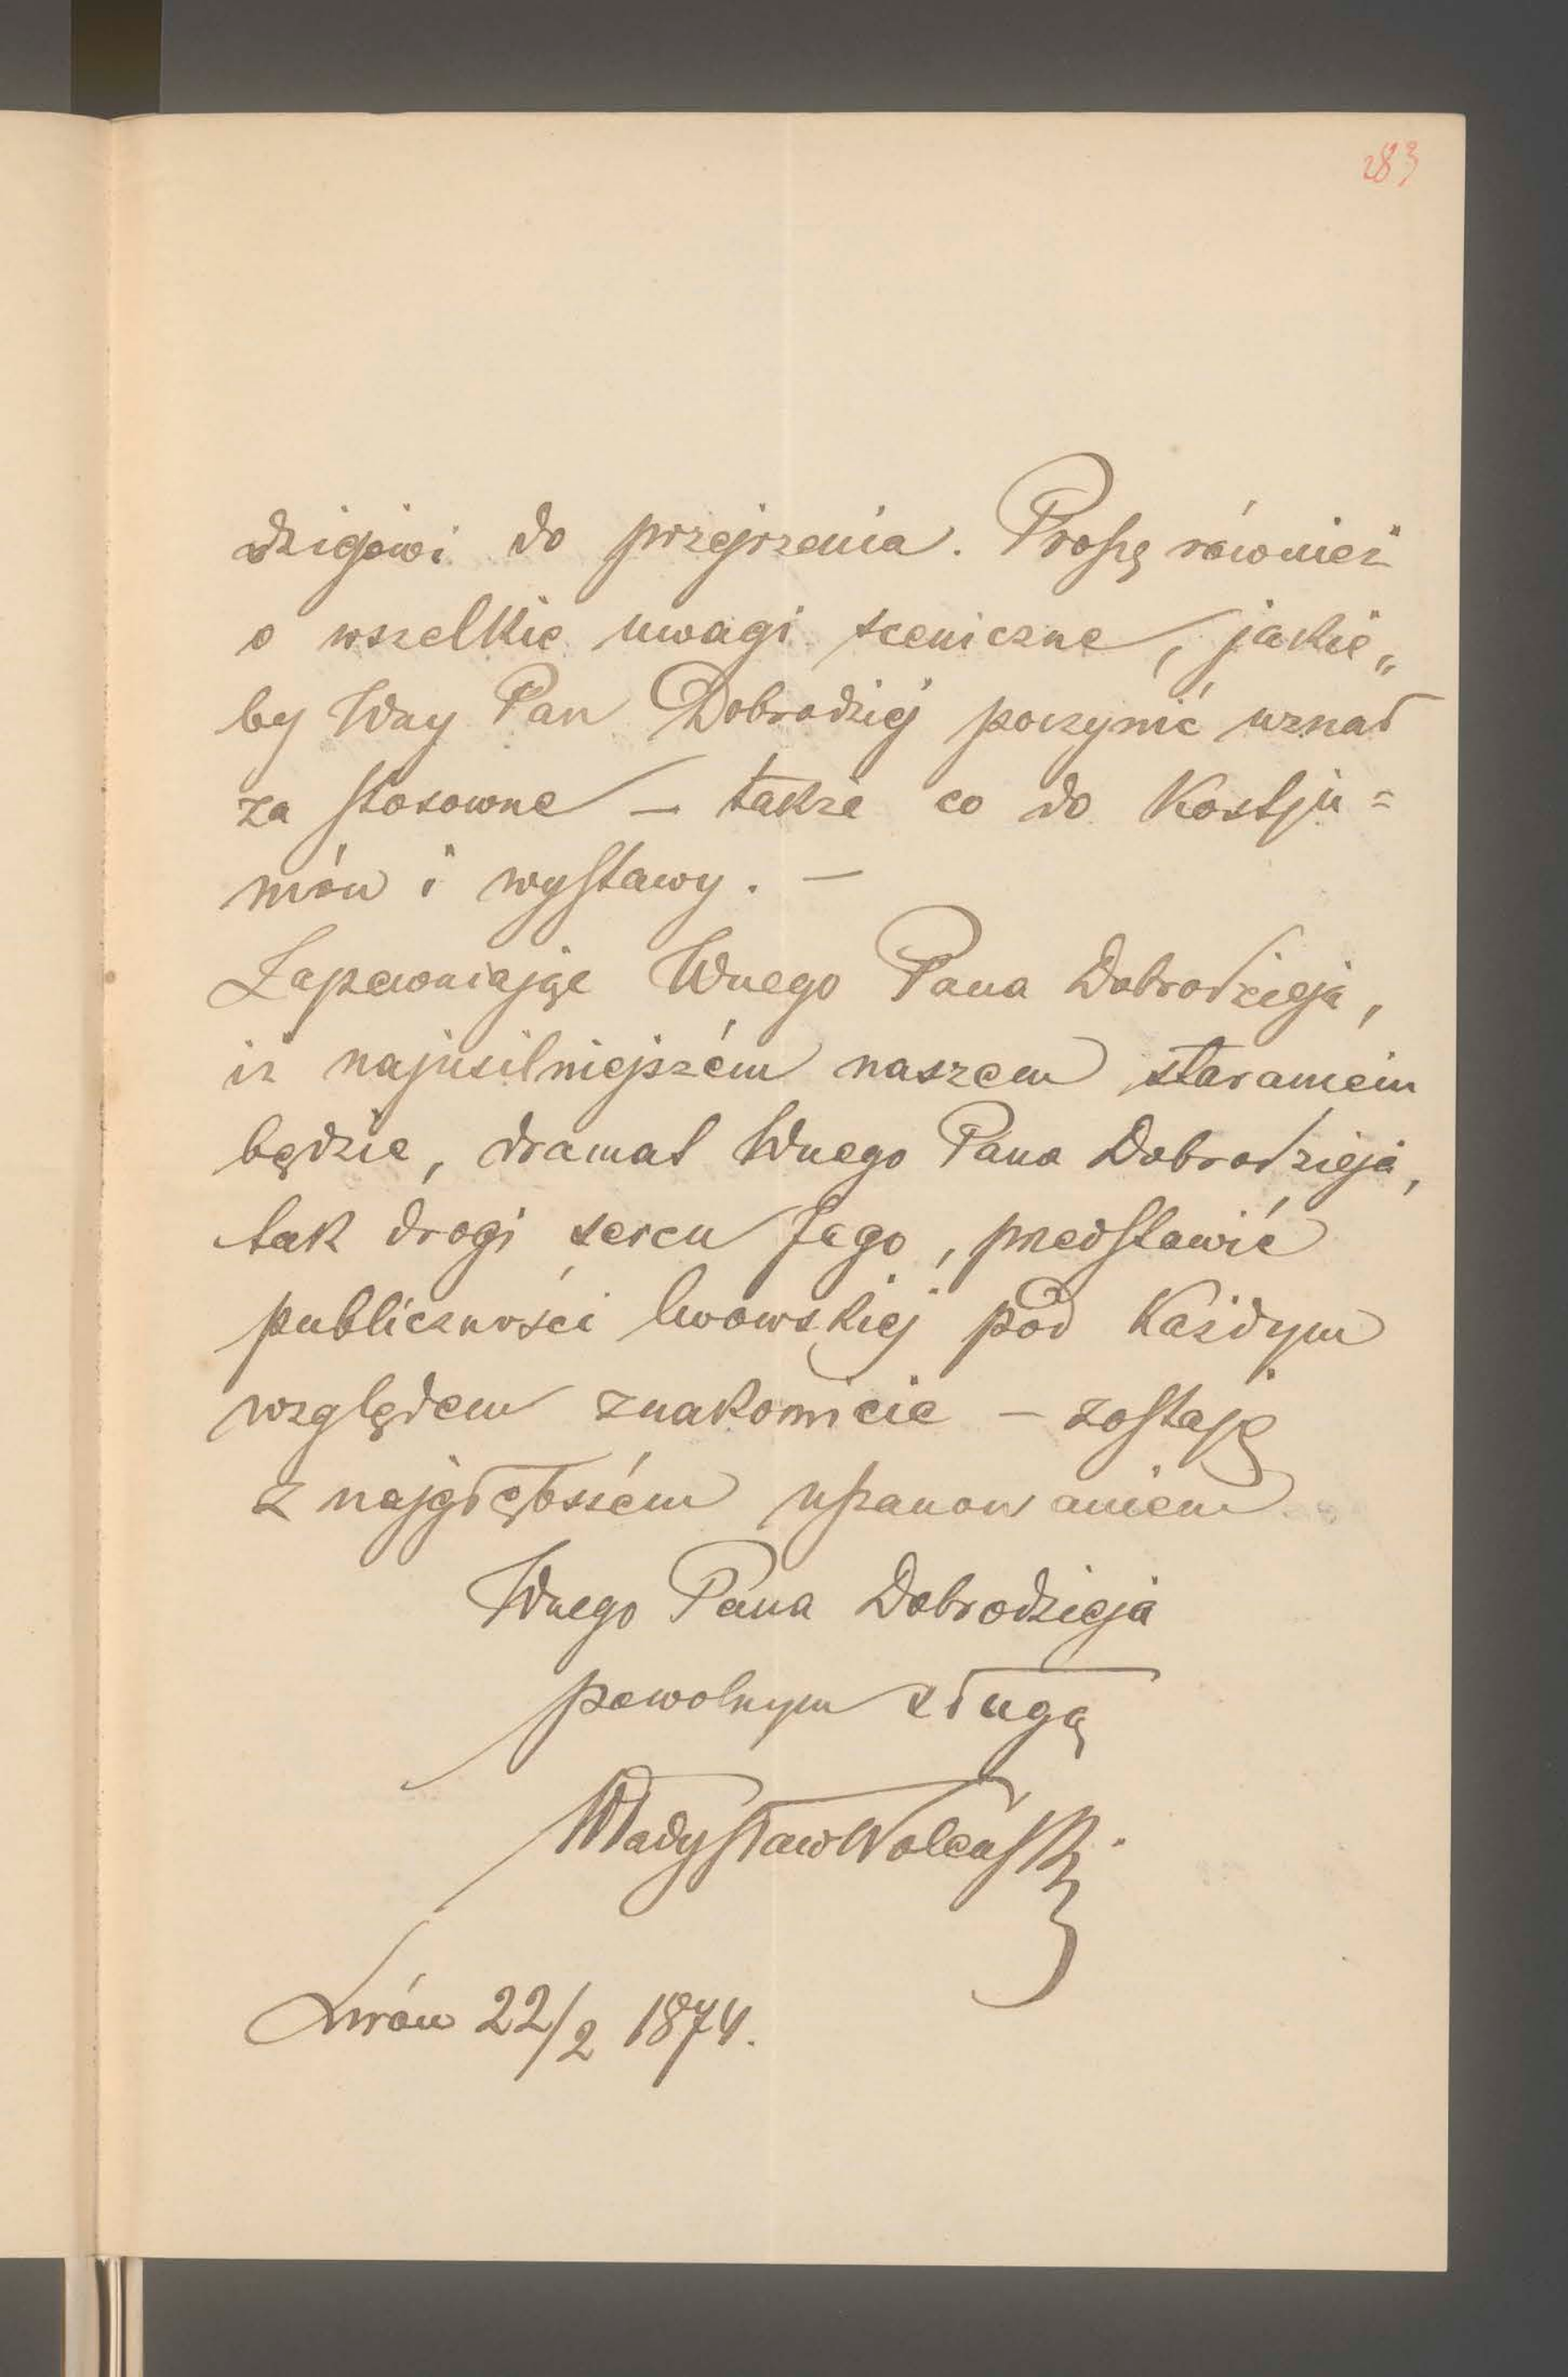 283
dziejowi do przejrzenia. Proszę również
o wszelkie uwagi sceniczne, jakie„
by Wny Pan Dobrodziéj poczynić uznał
za stosowne – także co do Kostju=
mów i wystawy. –
Zapewniając Wnego Pana Dobrodzieja,
iż najusilniejszém naszem staraniem
będzie, dramat Wnego Pana Dobrodzieja,
tak drogi sercu Jego, przedstawić
publiczności lwowskiej pod każdym
względem znakomicie – zostaję
z najgłębszém uszanowaniem
Wnego Pana Dobrodzieja
powolnym sługą
Władysław Woleński.
Lwów 22/2 1874.